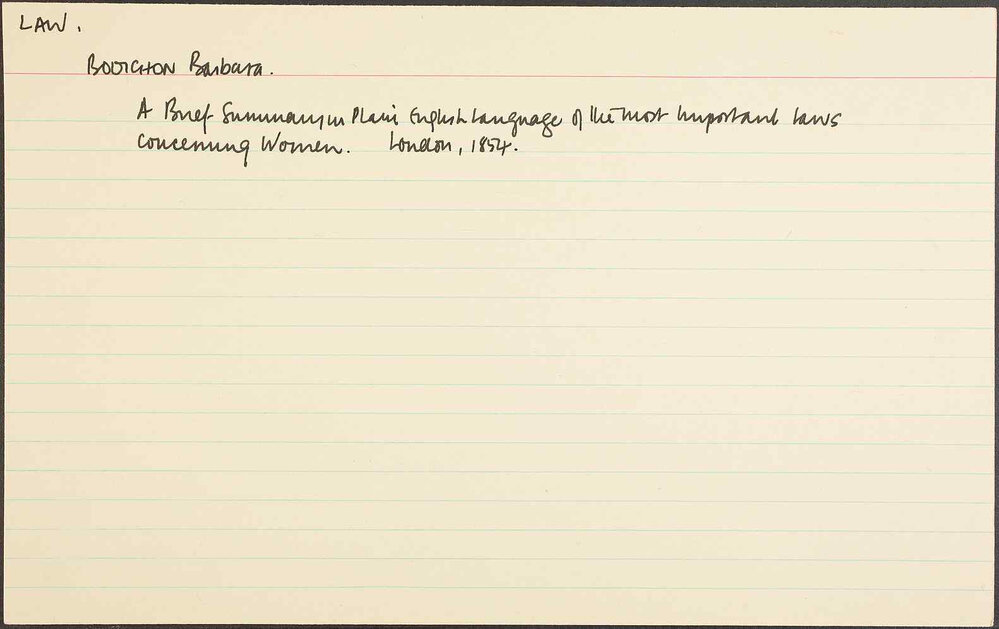 LAW.
BODICHON Barbara.
A Brief Summary in Plain English Language of the most important laws
concerning Women. London, 1854.